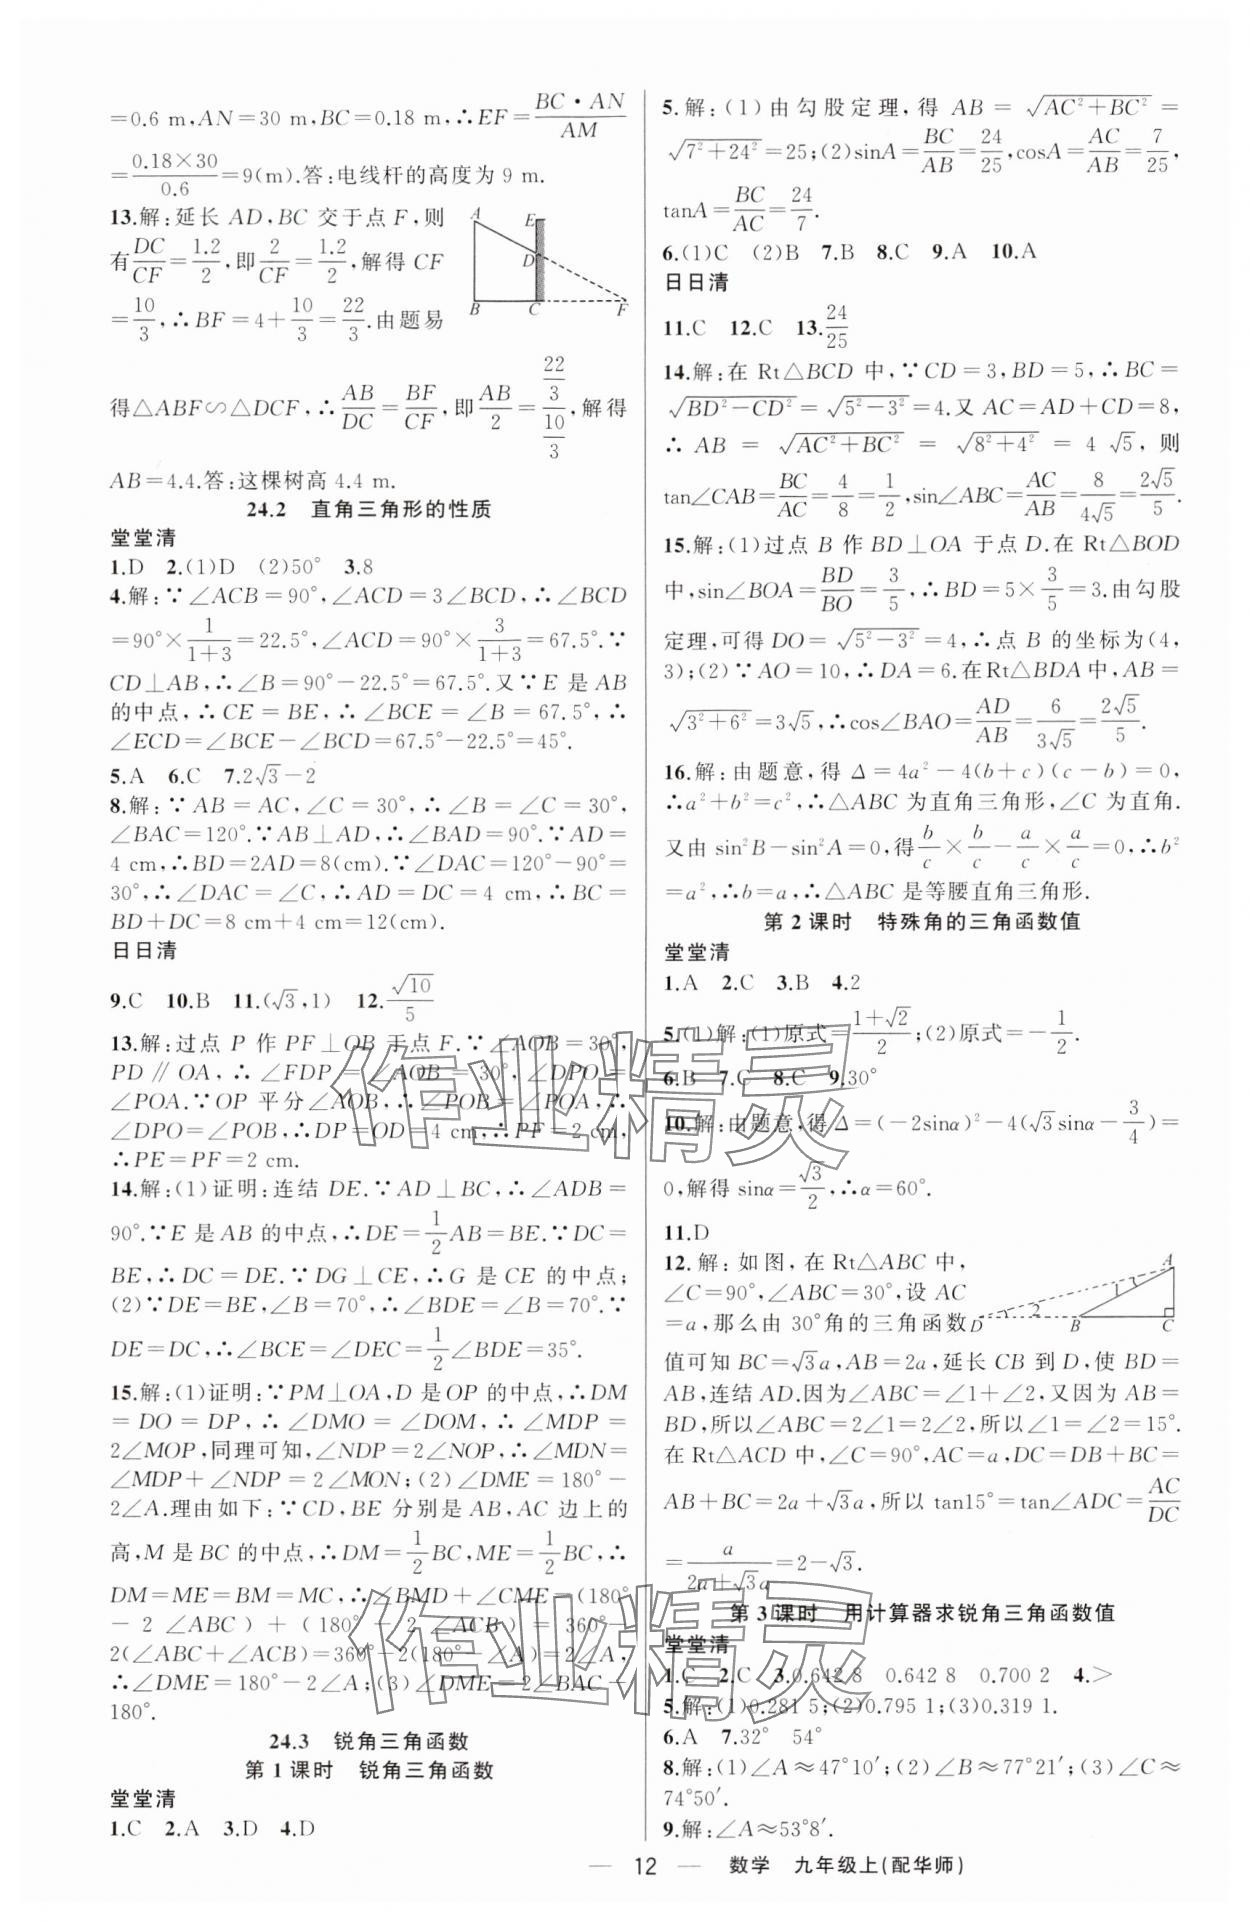 =0.6 m,AN=30 m,BC=0.18 m,∴EF=BC·AN/AM
=0.18×30/0.6=9(m).答:电线杆的高度为 9 m.
13.解:延长 AD,BC 交于点 F,则
有DC/CF=1.2/2,即2/CF=1.2/2,解得 CF
=10/3,∴BF=4+10/3=22/3.由题易
得△ABF∽△DCF,∴AB/DC=BF/CF,即AB/2=(22/3)/(10/3),解得
AB=4.4.答:这棵树高 4.4 m.
A E D B C F
24.2 直角三角形的性质
堂堂清
1.D 2.(1)D (2)50° 3.8
4.解:∵∠ACB=90°,∠ACD=3∠BCD,∴∠BCD
=90°×1/(1+3)=22.5°,∠ACD=90°×3/(1+3)=67.5°.∵
CD⊥AB,∴∠B=90°-22.5°=67.5°.又∵E 是 AB
的中点,∴CE=BE,∴∠BCE=∠B=67.5°,∴
∠ECD=∠BCE-∠BCD=67.5°-22.5°=45°.
5.A 6.C 7.2√3-2
8.解:∵AB=AC,∠C=30°,∴∠B=∠C=30°,
∠BAC=120°.∵AB⊥AD,∴∠BAD=90°.∵AD=
4 cm,∴BD=2AD=8(cm).∵∠DAC=120°-90°=
30°,∴∠DAC=∠C,∴AD=DC=4 cm,∴BC=
BD+DC=8 cm+4 cm=12(cm).
日日清
9.C 10.B 11.(√3,1) 12.√10/5
13.解:过点 P 作 PF⊥OB 于点 F.∵∠AOB=30°,
PD∥OA,∴∠FDP=∠AOB=30°,∠DPO=
∠POA.∵OP 平分∠AOB,∴∠POB=∠POA,∴
∠DPO=∠POB,∴DP=OD=4 cm,∴PF=2 cm,
∴PE=PF=2 cm.
14.解:(1)证明:连结 DE.∵AD⊥BC,∴∠ADB=
90°.∵E 是 AB 的中点,∴DE=1/2AB=BE.∵DC=
BE,∴DC=DE.∵DG⊥CE,∴G 是 CE 的中点;
(2)∵DE=BE,∠B=70°,∴∠BDE=∠B=70°.∵
DE=DC,∴∠BCE=∠DEC=1/2∠BDE=35°.
15.解:(1)证明:∵PM⊥OA,D 是 OP 的中点,∴DM
=DO=DP,∴∠DMO=∠DOM,∴∠MDP=
2∠MOP,同理可知,∠NDP=2∠NOP,∴∠MDN=
∠MDP+∠NDP=2∠MON;(2)∠DME=180°-
2∠A.理由如下:∵CD,BE 分别是 AB,AC 边上的
高,M 是 BC 的中点,∴DM=1/2BC,ME=1/2BC,∴
DM=ME=BM=MC,∴∠BMD+∠CME=(180°
-2∠ABC)+(180°-2∠ACB)=360°-
2(∠ABC+∠ACB)=360°-2(180°-∠A)=2∠A,
∴∠DME=180°-2∠A;(3)∠DME=2∠BAC-
180°.
24.3 锐角三角函数
第 1 课时 锐角三角函数
堂堂清
1.C 2.A 3.D 4.D
5.解:(1)由勾股定理,得 AB=√(AC²+BC²)=
√(7²+24²)=25;(2)sinA=BC/AB=24/25,cosA=AC/AB=7/25,
tanA=BC/AC=24/7.
6.(1)C (2)B 7.B 8.C 9.A 10.A
日日清
11.C 12.C 13.24/25
14.解:在 Rt△BCD 中,∵CD=3,BD=5,∴BC=
√(BD²-CD²)=√(5²-3²)=4.又 AC=AD+CD=8,
∴AB=√(AC²+BC²)=√(8²+4²)=4√5,则
tan∠CAB=BC/AC=4/8=1/2,sin∠ABC=AC/AB=8/4√5=2√5/5.
15.解:(1)过点 B 作 BD⊥OA 于点 D.在 Rt△BOD
中,sin∠BOA=BD/BO=3/5,∴BD=5×3/5=3.由勾股
定理,可得 DO=√(5²-3²)=4,∴点 B 的坐标为(4,
3);(2)∵AO=10,∴DA=6.在Rt△BDA 中,AB=
√(3²+6²)=3√5,∴cos∠BAO=AD/AB=6/3√5=2√5/5.
16.解:由题意,得 Δ=4a²-4(b+c)(c-b)=0,
∴a²+b²=c²,∴△ABC 为直角三角形,∠C 为直角.
又由 sin²B-sin²A=0,得b/c×b/c-a/c×a/c=0,∴b²
=a²,∴b=a,∴△ABC 是等腰直角三角形.
第 2 课时 特殊角的三角函数值
堂堂清
1.A 2.C 3.B 4.2
5.(1)解:(1)原式=(1+√2)/2;(2)原式=-1/2.
6.B 7.C 8.C 9.30°
10.解:由题意,得 Δ=(-2sinα)²-4(√3sinα-3/4)=
0,解得 sinα=√3/2,∴α=60°.
11.D
12.解:如图,在 Rt△ABC 中,
∠C=90°,∠ABC=30°,设 AC
=a,那么由 30°角的三角函数
A 1 2 D B C
值可知 BC=√3a,AB=2a,延长 CB 到 D,使 BD=
AB,连结 AD.因为∠ABC=∠1+∠2,又因为 AB=
BD,所以∠ABC=2∠1=2∠2,所以∠1=∠2=15°.
在 Rt△ACD 中,∠C=90°,AC=a,DC=DB+BC=
AB+BC=2a+√3a,所以 tan15°=tan∠ADC=AC/DC
=a/(2a+√3a)=2-√3.
第 3 课时 用计算器求锐角三角函数值
堂堂清
1.C 2.C 3.0.642 8 0.642 8 0.700 2 4.>
5.解:(1)0.281 5;(2)0.795 1;(3)0.319 1.
6.A 7.32° 54°
8.解:(1)∠A≈47°10′;(2)∠B≈77°21′;(3)∠C≈
74°50′.
9.解:∠A≈53°8′.
— 12 — 数学 九年级上(配华师)
作业精灵
作业精灵